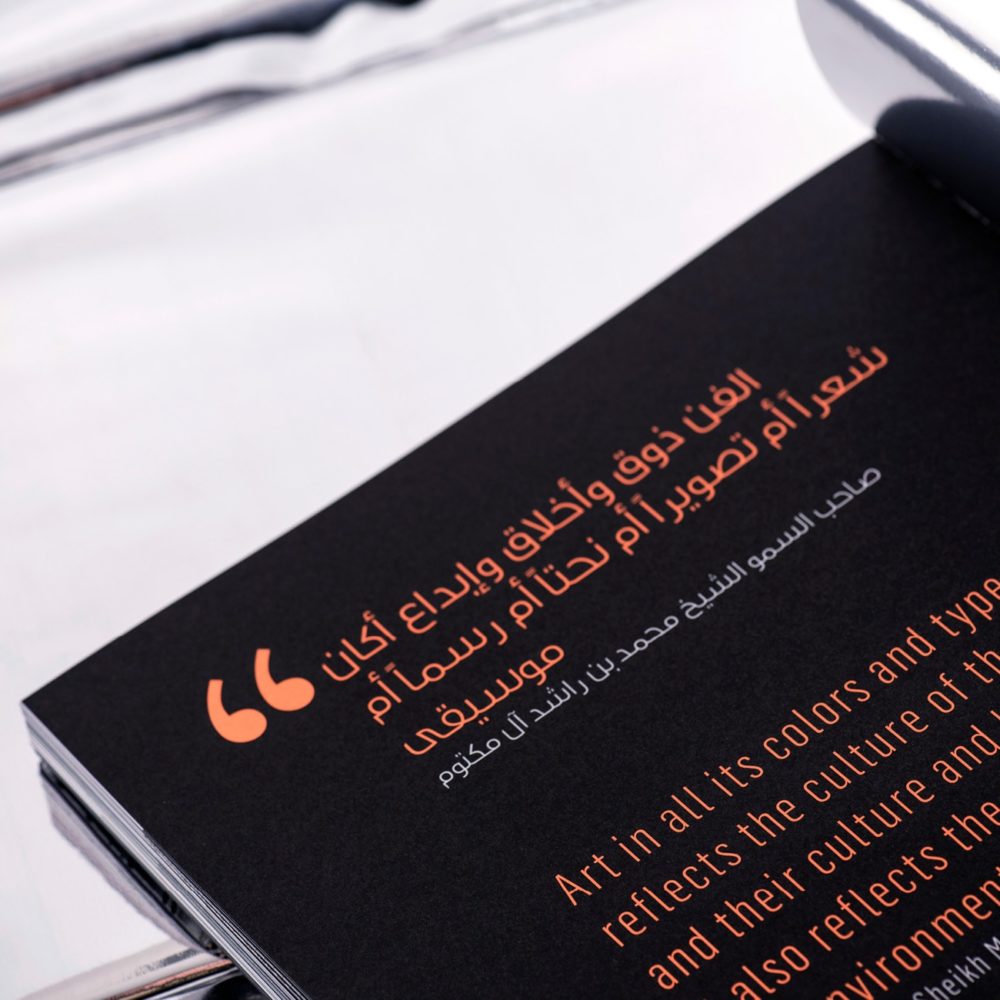 “
الفن ذوق وأخلاق وإبداع أكان
شعراً أم تصويراً أم نحتاً أم رسماً أم
موسيقى
صاحب السمو الشيخ محمد بن راشد آل مكتوم
Art in all its colors and type
reflects the culture of th
and their culture and
also reflects the
nvironment
Sheikh M